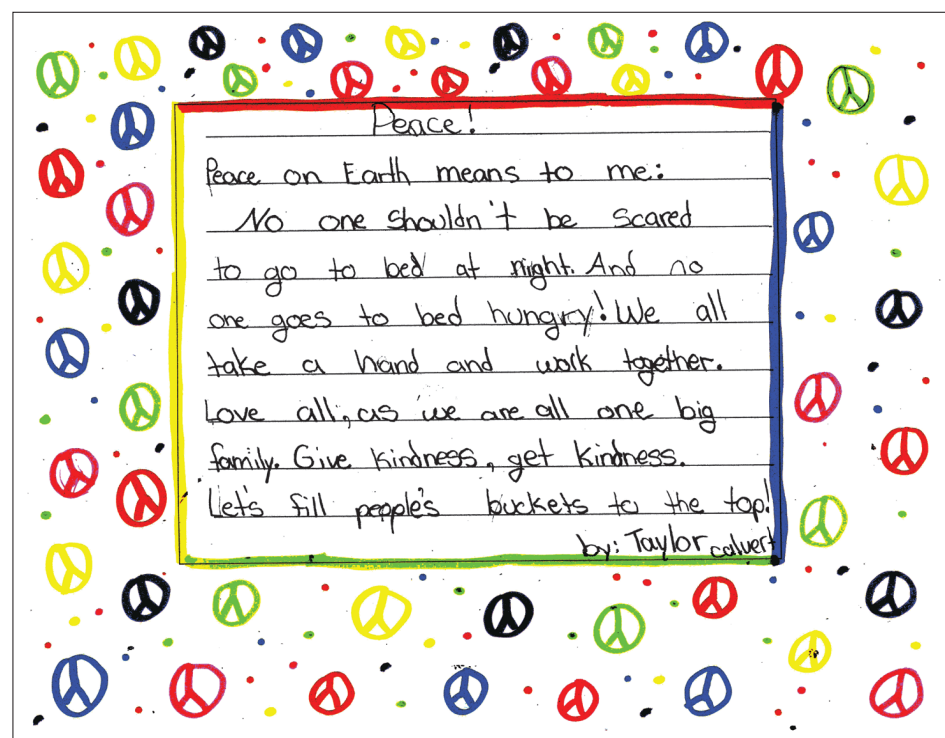 Peace!
Peace on Earth means to me:
No one shouldn't be scared
to go to bed at night. And no
one goes to bed hungry! We all
take a hand and work together.
Love all, as we are all one big
family. Give kindness, get kindness.
Let's fill people's buckets to the top!
by: Taylor calvert